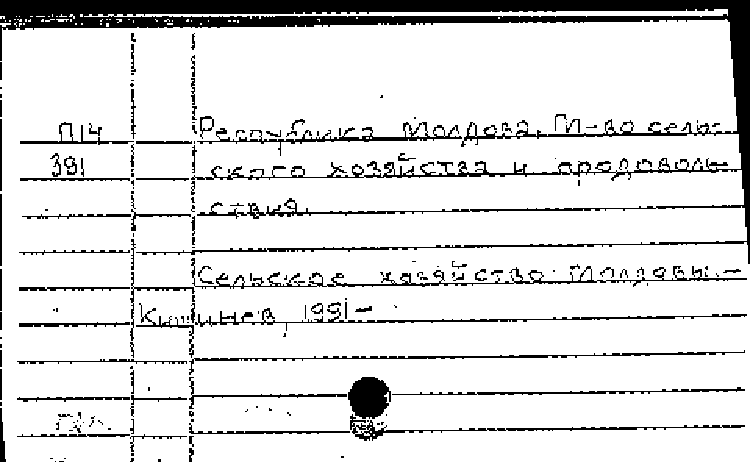 П14 Республика Молдова. М-во сель-
391 ского хозяйства и продоволь-
ствия.
Сельское хозяйство Молдовы.-
Кишинев, 1991-